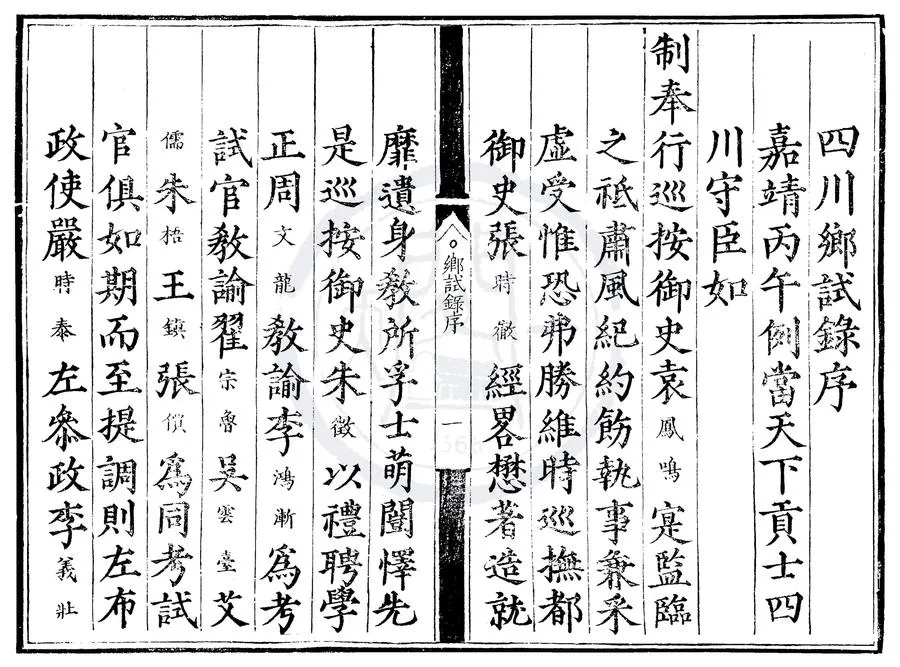 四川鄉試錄序
嘉靖丙午例當天下貢士四
川守臣如
制奉行巡按御史袁鳳鳴寔監臨
之祗肅風紀約飭執事兼采
虛受惟恐弗勝維時巡撫都
御史張時徹經畧懋著造就
鄉試錄序 一
靡遺身敎所孚士萌闓懌先
是巡按御史朱徵以禮聘學
正周文龍敎諭李鴻漸爲考
試官敎諭翟宗魯吳雲臺艾
儒朱梧王鎮張儐爲同考試
官俱如期而至提調則左布
政使嚴時泰左叅政李義壯